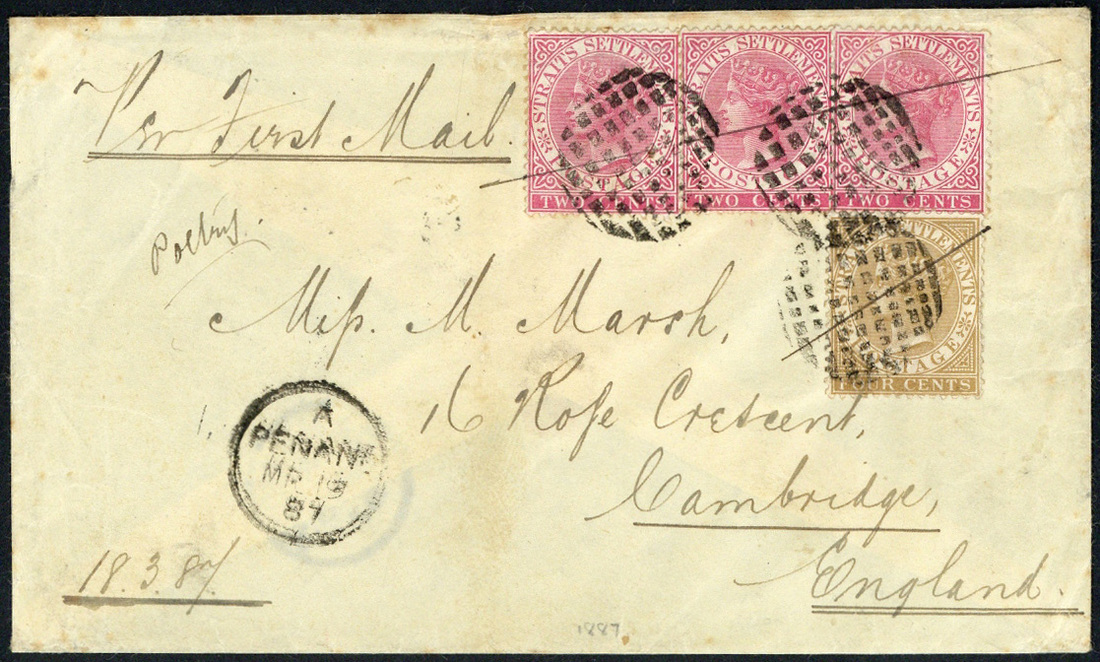 Per First Mail.
STRAITS SETTLEMENTS
POSTAGE
TWO CENTS
STRAITS SETTLEMENTS
POSTAGE
TWO CENTS
STRAITS SETTLEMENTS
POSTAGE
TWO CENTS
STRAITS SETTLEMENTS
POSTAGE
FOUR CENTS
Miſs. M. Marsh,
16 Roſe Crescent,
Cambridge,
England.
A
PENANG
MR 19
87
18.3.87
1887